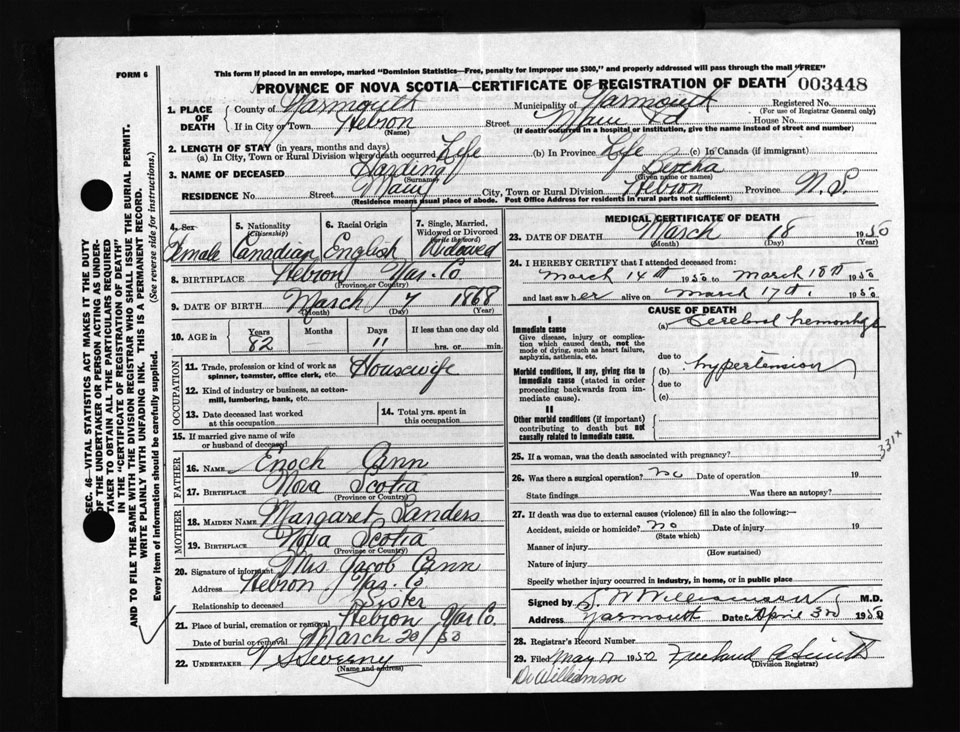 FORM 6
This form if placed in an envelope, marked "Dominion Statistics—Free, penalty for improper use $300," and properly addressed will pass through the mail "FREE"
PROVINCE OF NOVA SCOTIA—CERTIFICATE OF REGISTRATION OF DEATH 003448
1. PLACE OF DEATH
County of Yarmouth Municipality of Yarmouth Registered No.
(For use of Registrar General only)
If in City or Town Hebron Street Main Rd House No.
(Name) (If death occurred in a hospital or institution, give the name instead of street and number)
2. LENGTH OF STAY (in years, months and days)
(a) In City, Town or Rural Division where death occurred Life (b) In Province Life (c) In Canada (if immigrant)
3. NAME OF DECEASED Harding Bertha
(Surname) (Given name or names)
RESIDENCE No. Street Main City, Town or Rural Division Hebron Province N. S.
(Residence means usual place of abode. Post Office Address for residents in rural parts not sufficient)
4. Sex Female
5. Nationality (Citizenship) Canadian
6. Racial Origin English
7. Single, Married, Widowed or Divorced (write the word) Widowed
8. BIRTHPLACE Hebron Yar. Co
(Province or Country)
9. DATE OF BIRTH March 7 1868
(Month) (Day) (Year)
10. AGE in Years 82 Months Days 11 If less than one day old
hrs. or min.
OCCUPATION
11. Trade, profession or kind of work as spinner, teamster, office clerk, etc. Housewife
12. Kind of industry or business, as cotton-mill, lumbering, bank, etc.
13. Date deceased last worked at this occupation
14. Total yrs. spent in this occupation
15. If married give name of wife or husband of deceased
FATHER
16. NAME Enoch Cann
17. BIRTHPLACE Nova Scotia
(Province or Country)
MOTHER
18. MAIDEN NAME Margaret Sanders
19. BIRTHPLACE Nova Scotia
(Province or Country)
20. Signature of informant Mrs Jacob Cann
Address Hebron Yar. Co
Relationship to deceased Sister
21. Place of burial, cremation or removal Hebron Yar Co.
Date of burial or removal March 20/50
22. UNDERTAKER Sweeny
(Name and address)
MEDICAL CERTIFICATE OF DEATH
23. DATE OF DEATH March 18 1950
(Month) (Day) (Year)
24. I HEREBY CERTIFY that I attended deceased from:
March 14th 1950 to March 18th 1950
and last saw her alive on March 17th, 1950
CAUSE OF DEATH
I
Immediate cause
Give disease, injury or complication which caused death, not the mode of dying, such as heart failure, asphyxia, asthenia, etc.
(a) Cerebral hemorrhage
due to
Morbid conditions, if any, giving rise to immediate cause (stated in order proceeding backwards from immediate cause).
(b) hypertension
due to
(c)
II
Other morbid conditions (if important) contributing to death but not causally related to immediate cause.
331x
25. If a woman, was the death associated with pregnancy?
26. Was there a surgical operation? no Date of operation 19
State findings Was there an autopsy?
27. If death was due to external causes (violence) fill in also the following:—
Accident, suicide or homicide? no Date of injury 19
(State which)
Manner of injury
(How sustained)
Nature of injury
Specify whether injury occurred in industry, in home, or in public place
Signed by S. W Williamson M.D.
Address Yarmouth Date April 3rd 1950
28. Registrar's Record Number
29. Filed May 17 1950 Smith
(Division Registrar)
Dr Williamson
SEC. 46—VITAL STATISTICS ACT MAKES IT THE DUTY
OF THE UNDERTAKER OR PERSON ACTING AS UNDER-
TAKER TO OBTAIN ALL THE PARTICULARS REQUIRED
IN THE "CERTIFICATE OF REGISTRATION OF DEATH"
AND TO FILE THE SAME WITH THE DIVISION REGISTRAR WHO SHALL ISSUE THE BURIAL PERMIT.
WRITE PLAINLY WITH UNFADING INK. THIS IS A PERMANENT RECORD.
Every item of information should be carefully supplied. (See reverse side for instructions.)